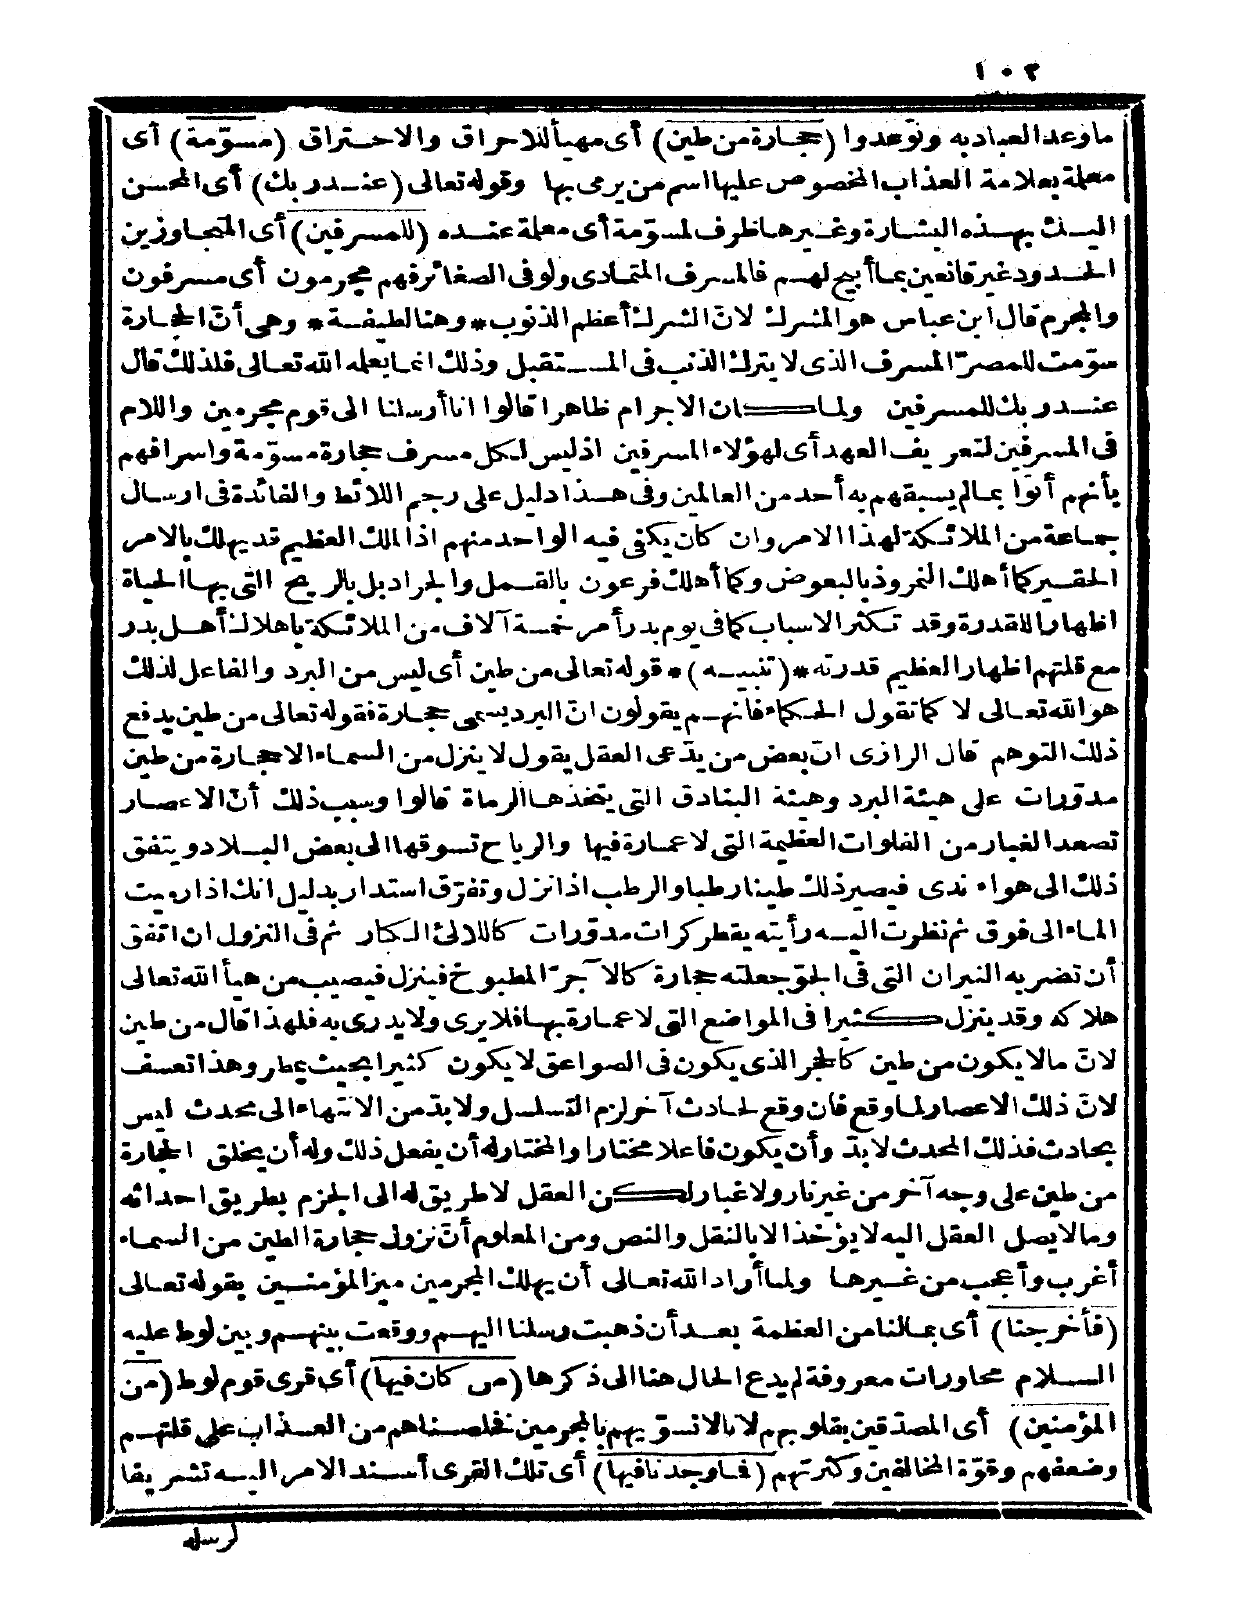 ١٠٢
ما وعد العباد به وتوعدوا (حجارة من طين) أى مهيأ للاحراق والاحتراق (مسوّمة) أى
معلمة بعلامة العذاب المخصوص عليها اسم من يرمى بها وقوله تعالى (عند ربك) أى المحسن
اليك بهذه البشارة وغيرها ظرف لمسوّمة أى معلمة عنده (للمسرفين) أى المتجاوزين
الحدود غير قانعين بما أبيح لهم فالمسرف المتمادى ولو فى الصغائر فهم مجرمون أى مسرفون
والمجرم قال ابن عباس هو المشرك لانّ الشرك أعظم الذنوب * وهنا لطيفة * وهى أنّ الحجارة
سوّمت للمصرّ المسرف الذى لا يترك الذنب فى المستقبل وذلك انما يعلمه الله تعالى فلذلك قال
عند ربك للمسرفين ولما كان الاجرام ظاهرا قالوا انا أرسلنا الى قوم مجرمين واللام
فى المسرفين لتعريف العهد أى لهؤلاء المسرفين اذ ليس لكل مسرف حجارة مسوّمة واسرافهم
بأنهم أتوا بما لم يسبقهم به أحد من العالمين وفى هذا دليل على رجم اللائط والفائدة فى ارسال
جماعة من الملائكة لهذا الامر وان كان يكفى فيه الواحد منهم اذ الملك العظيم قد يهلك بالامر
الحقير كما أهلك النمروذ بالبعوض وكما أهلك فرعون بالقمل والجراد بل بالريح التى بها الحياة
اظهارا للقدرة وقد تكثر الاسباب كما فى يوم بدر أمر خمسة آلاف من الملائكة باهلاك أهل بدر
مع قلتهم اظهار العظيم قدرته * (تنبيه) * قوله تعالى من طين أى ليس من البرد والفاعل لذلك
هو الله تعالى لا كما تقول الحكماء فانهم يقولون انّ البرد يسمى حجارة فقوله تعالى من طين يدفع
ذلك التوهم قال الرازى انّ بعض من يدّعى العقل يقول لا ينزل من السماء الا حجارة من طين
مدوّرات على هيئة البرد وهيئة البنادق التى يتخذها الرماة قالوا وسبب ذلك أنّ الاعصار
تصعد الغبار من الفلوات العظيمة التى لا عمارة فيها والرياح تسوقها الى بعض البلاد ويتفق
ذلك الى هواء ندى فيصير ذلك طينا رطبا والرطب اذا نزل وتفرّق استدار بدليل انك اذا رميت
الماء الى فوق ثم نظرت اليه رأيته يقطر كرات مدوّرات كاللآلئ الكبار ثم فى النزول ان اتفق
أن تضربه النيران التى فى الجوّ جعلته حجارة كالآجرّ المطبوخ فينزل فيصيب من هيأ الله تعالى
هلاكه وقد ينزل كثيرا فى المواضع التى لا عمارة بها فلا يرى ولا يدرى به فلهذا قال من طين
لانّ ما لا يكون من طين كالحجر الذى يكون فى الصواعق لا يكون كثيرا بحيث يمطر وهذا تعسف
لانّ ذلك الاعصار لما وقع فان وقع لحادث آخر لزم التسلسل ولا بدّ من الانتهاء الى محدث ليس
بحادث فذلك المحدث لا بدّ وأن يكون فاعلا مختارا والمختار له أن يفعل ذلك وله أن يخلق الحجارة
من طين على وجه آخر من غير نار ولا غبار لكن العقل لا طريق له الى الجزم بطريق احداثه
وما لا يصل العقل اليه لا يؤخذ الا بالنقل والنص ومن المعلوم أنّ نزول حجارة الطين من السماء
أغرب وأعجب من غيرها ولما أراد الله تعالى أن يهلك المجرمين ميز المؤمنين بقوله تعالى
(فأخرجنا) أى بما لنا من العظمة بعد أن ذهبت رسلنا اليهم ووقعت بينهم وبين لوط عليه
السلام محاورات معروفة لم يدع الحال هنا الى ذكرها (من كان فيها) أى قرى قوم لوط (من
المؤمنين) أى المصدّقين بقلوبهم لانا لا نسوّيهم بالمجرمين فخلصناهم من العذاب على قلتهم
وضعفهم وقوّة المخالفين وكثرتهم (فما وجدنا فيها) أى تلك القرى أسند الامر اليه تشريفا
لرسله